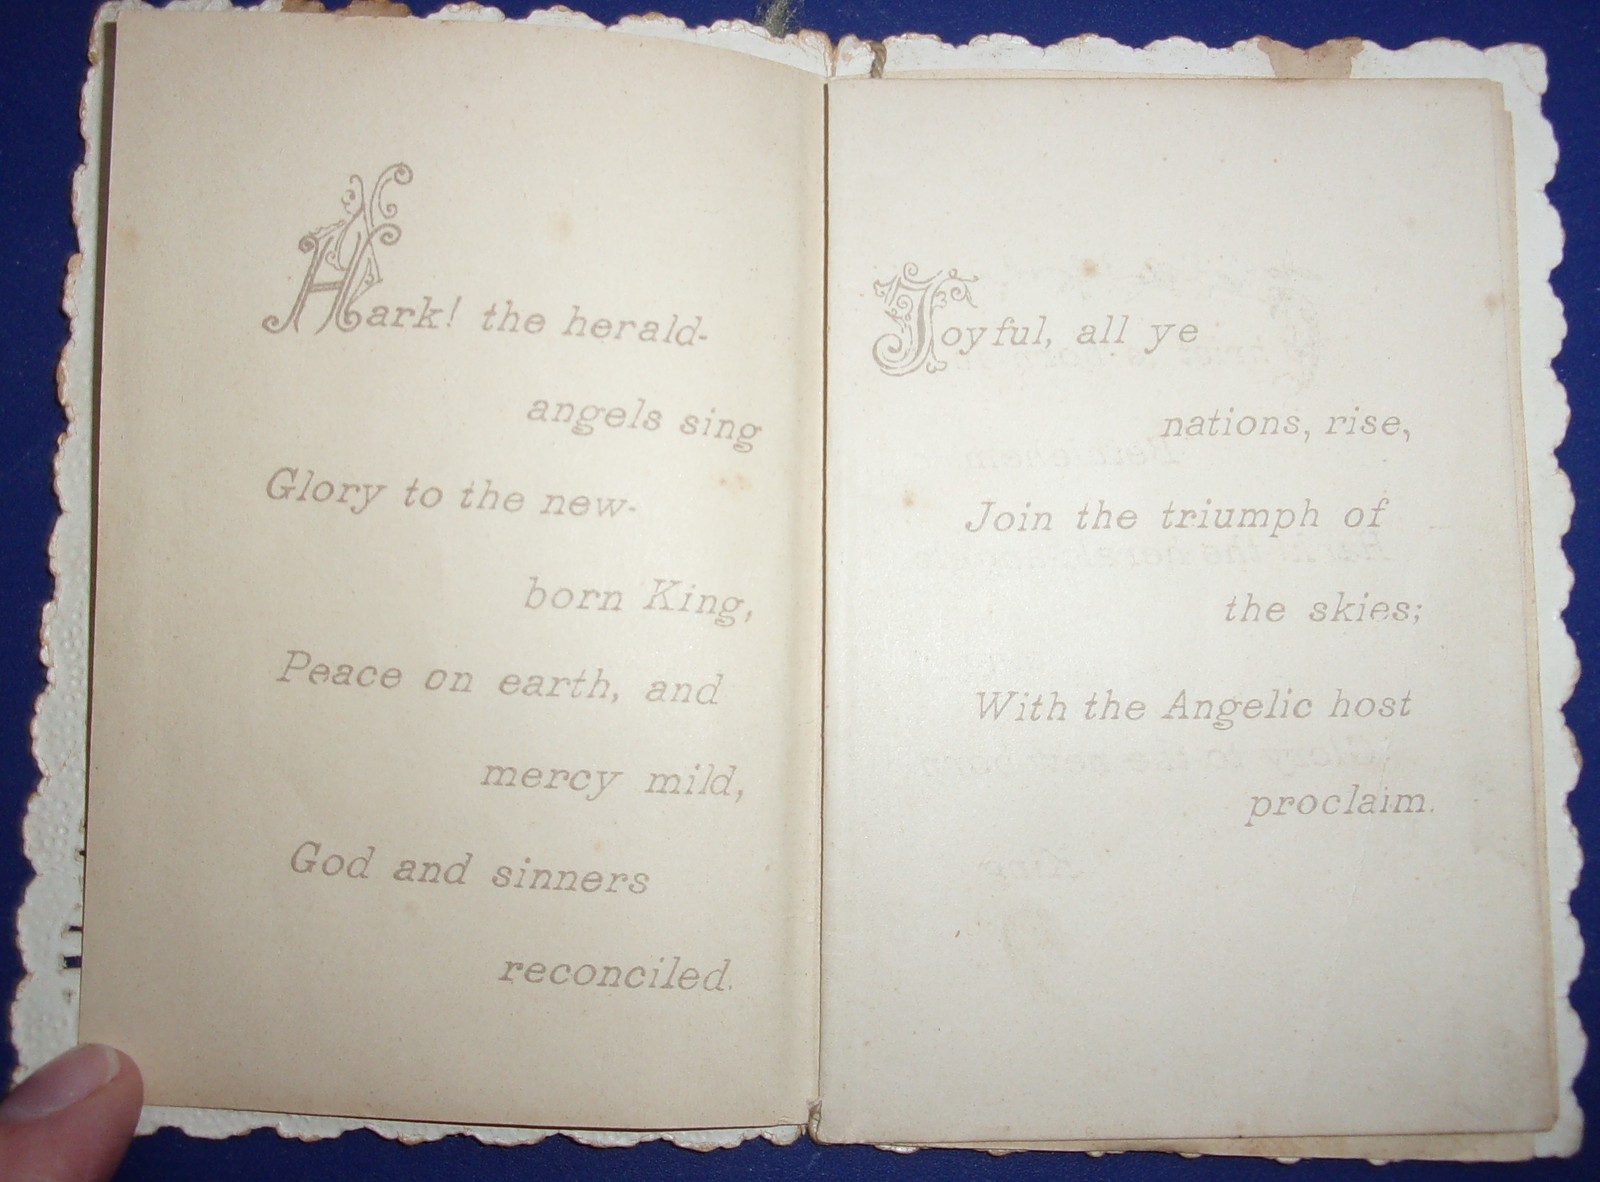 Hark! the herald-
angels sing
Glory to the new-
born King,
Peace on earth, and
mercy mild,
God and sinners
reconciled.
Joyful, all ye
nations, rise,
Join the triumph of
the skies;
With the Angelic host
proclaim.